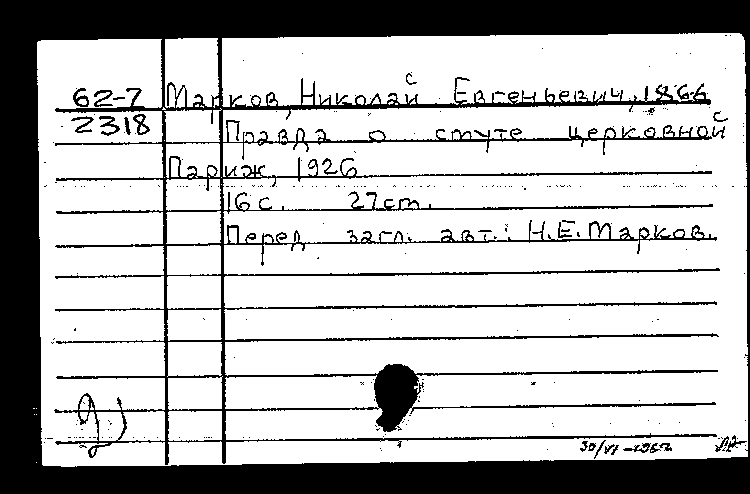 62-7 Марков, Николай Евгеньевич, 1866
2318 Правда о смуте церковной
Париж, 1926
16 с. 27 cm.
Перед загл. авт.: Н.Е. Марков.
30/VI-1962